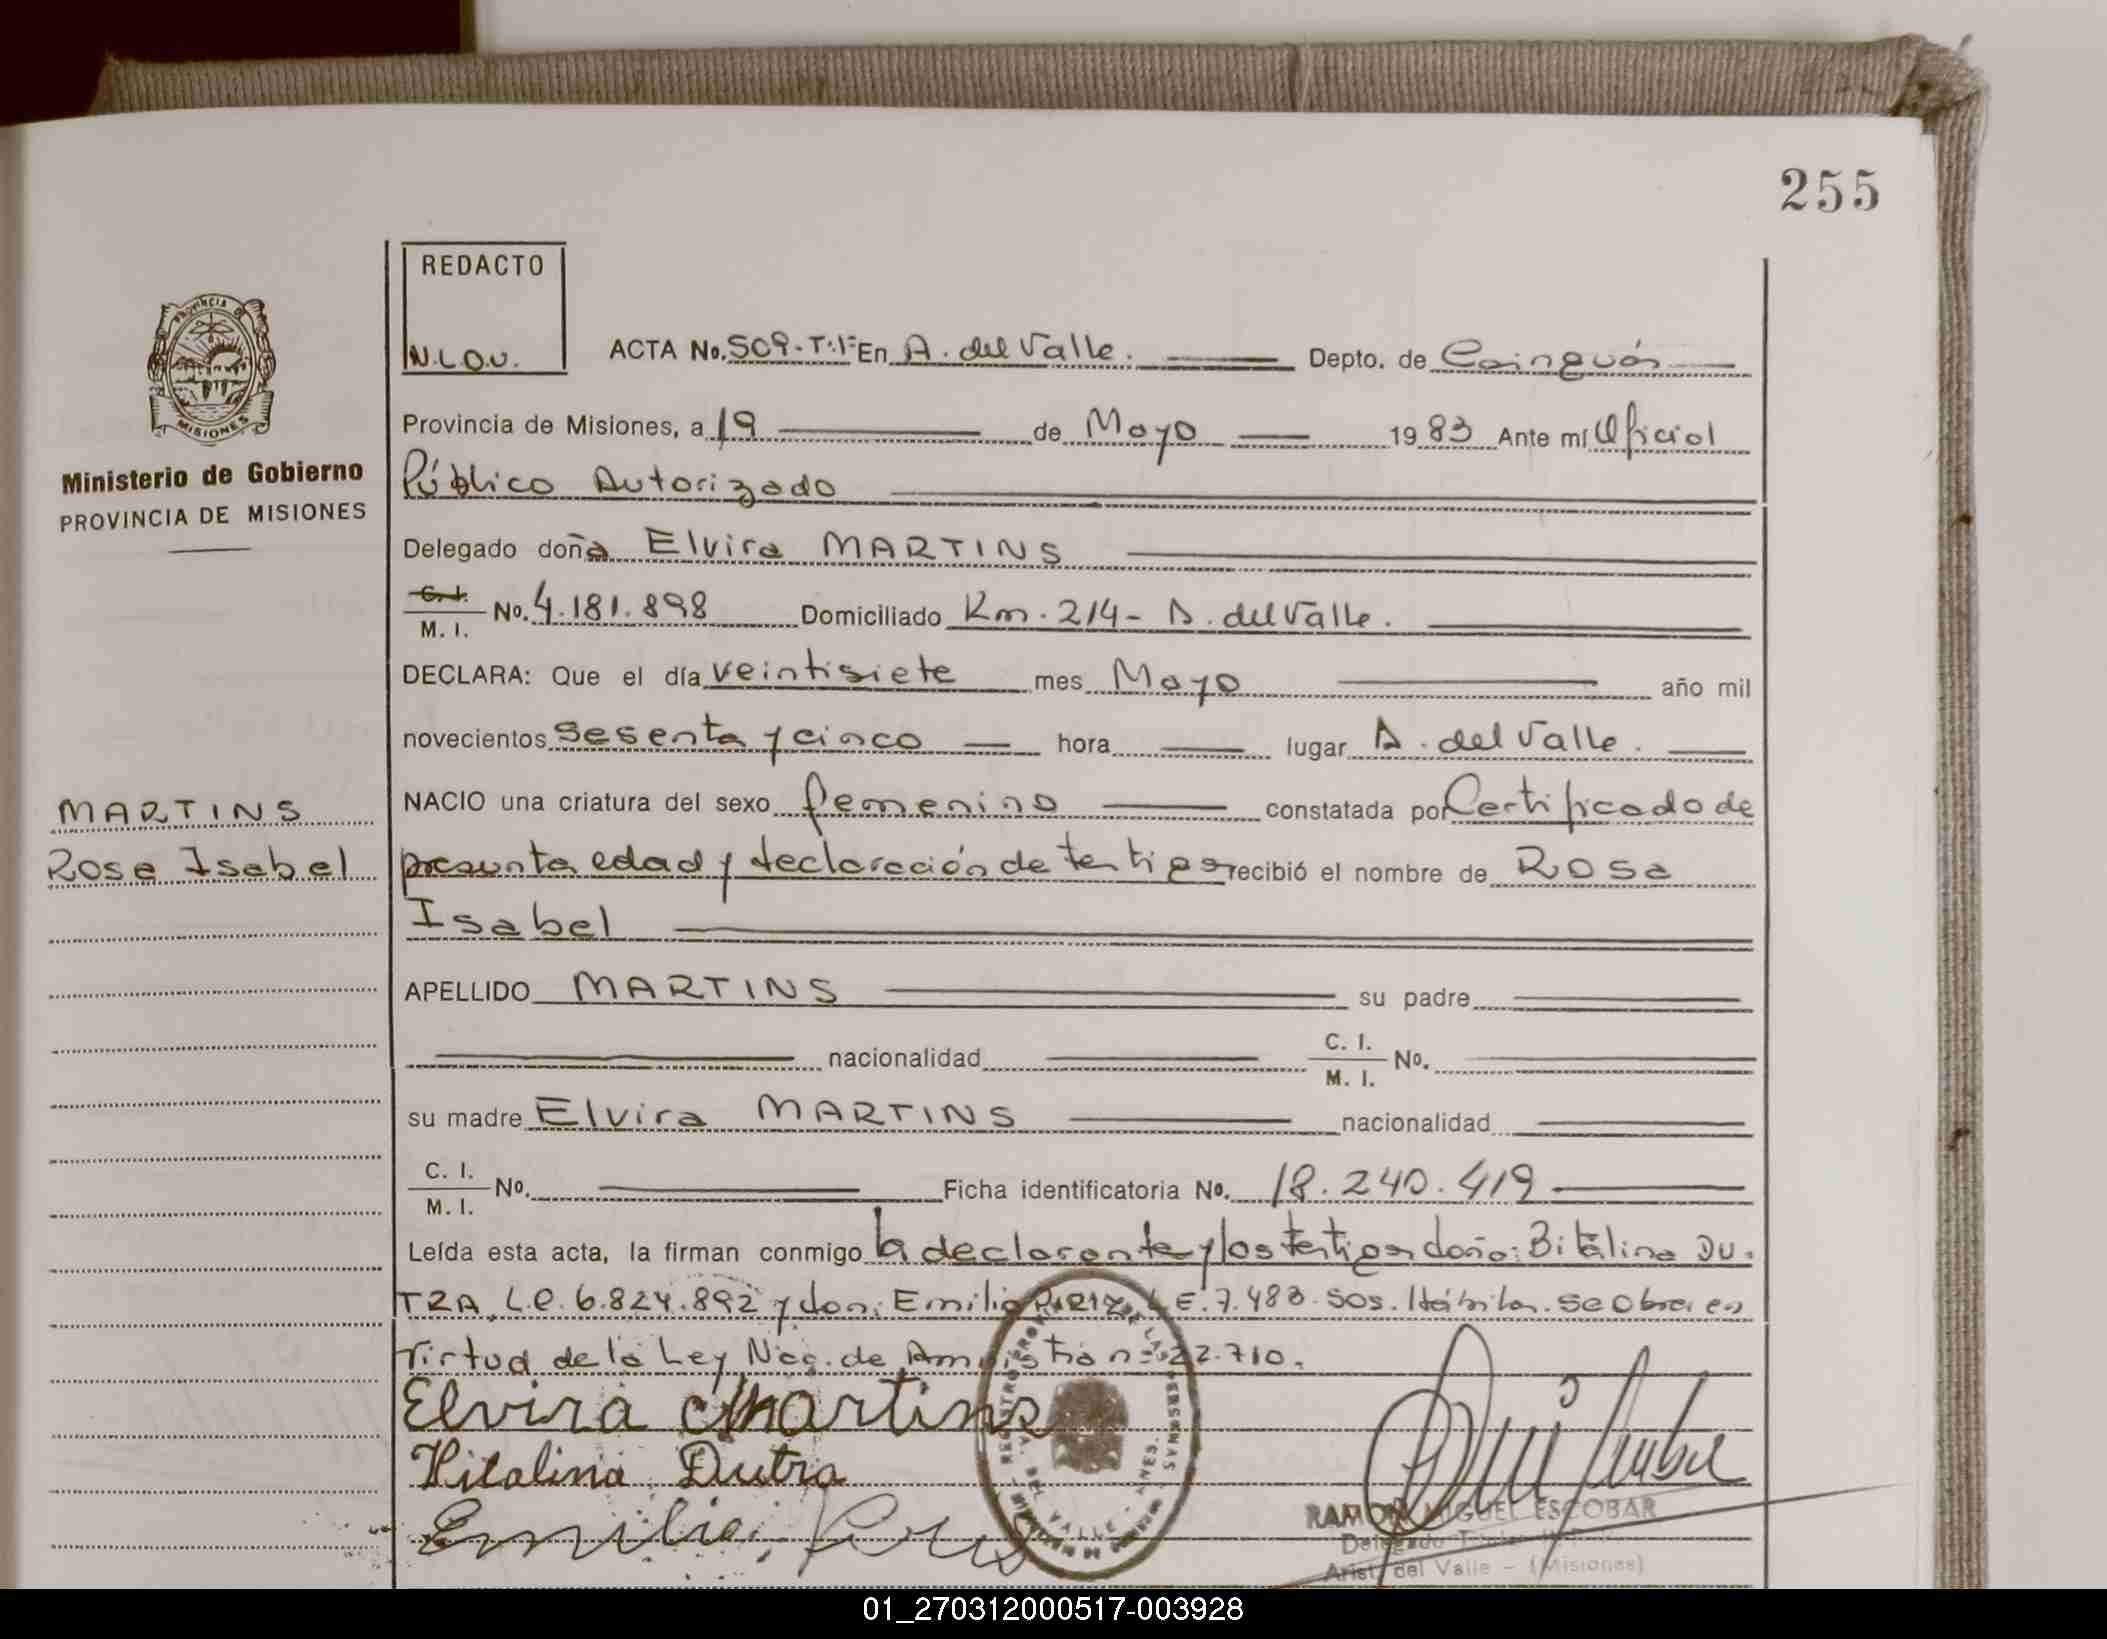 255
REDACTO
N.L.O.V.
ACTA No. 509-T.1º En A. del Valle. Depto. de Cainguás
Provincia de Misiones, a 19 de Mayo 1983 Ante mí Oficial
Público Autorizado
Delegado doña Elvira MARTINS
C. I.
M. I. No. 4.181.898 Domiciliado Km. 214 - A. del Valle.
DECLARA: Que el día veintisiete mes Mayo año mil
novecientos sesenta y cinco hora lugar A. del Valle.
NACIO una criatura del sexo femenino constatada por Certificado de
presunta edad y declaración de testigos recibió el nombre de Rosa
Isabel
APELLIDO MARTINS su padre
nacionalidad C. I.
M. I. No.
su madre Elvira MARTINS nacionalidad
C. I.
M. I. No. Ficha identificatoria No. 18.240.419
Leída esta acta, la firman conmigo la declarante y los testigos doña: Bitalina DU-
TRA L.C. 6.824.892 y don: Emilio L.E. 7.488.505. Hábiles. se obra en
virtud de la Ley Nac. de Amnistía nº 22.710.
Elvira Martins
Vitalina Dutra
Emilio
RAMON MIGUEL ESCOBAR
Delegado
Arist. del Valle - (Misiones)
PROVINCIA DE
MISIONES
Ministerio de Gobierno
PROVINCIA DE MISIONES
MARTINS
Rosa Isabel
01_270312000517-003928